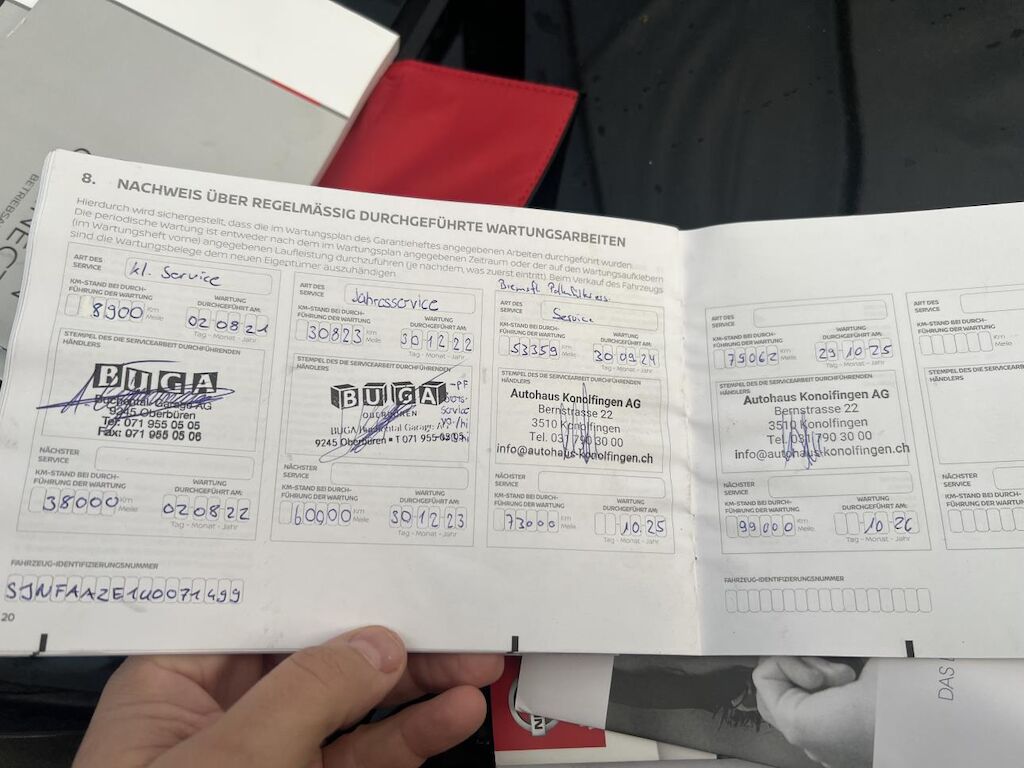 8. NACHWEIS ÜBER REGELMÄSSIG DURCHGEFÜHRTE WARTUNGSARBEITEN
Hierdurch wird sichergestellt, dass die im Wartungsplan des Garantieheftes angegebenen Arbeiten durchgeführt wurden.
Die periodische Wartung ist entweder nach dem im Wartungsplan angegebenen Zeitraum oder der auf den Wartungsaufklebern
(im Wartungsheft vorne) angegebenen Laufleistung durchzuführen (je nachdem, was zuerst eintritt). Beim Verkauf des Fahrzeugs
sind die Wartungsbelege dem neuen Eigentümer auszuhändigen.
ART DES SERVICE kl. Service
KM-STAND BEI DURCH-FÜHRUNG DER WARTUNG WARTUNG DURCHGEFÜHRT AM:
8900 Km Meile 02 08 21
Tag - Monat - Jahr
STEMPEL DES DIE SERVICEARBEIT DURCHFÜHRENDEN HÄNDLERS
BUGA
Buchental Garage AG
9245 Oberbüren
Tel: 071 955 05 05
Fax: 071 955 05 06
NÄCHSTER SERVICE
KM-STAND BEI DURCH-FÜHRUNG DER WARTUNG WARTUNG DURCHGEFÜHRT AM:
38000 Km Meile 02 08 22
Tag - Monat - Jahr
ART DES SERVICE Jahresservice
KM-STAND BEI DURCH-FÜHRUNG DER WARTUNG WARTUNG DURCHGEFÜHRT AM:
30823 Km Meile 30 12 22
Tag - Monat - Jahr
STEMPEL DES DIE SERVICEARBEIT DURCHFÜHRENDEN HÄNDLERS
BUGA
OBERBÜREN
BUGA Buchental Garage
9245 Oberbüren • T 071 955
NÄCHSTER SERVICE
KM-STAND BEI DURCH-FÜHRUNG DER WARTUNG WARTUNG DURCHGEFÜHRT AM:
60000 Km Meile 30 12 23
Tag - Monat - Jahr
ART DES SERVICE Service
KM-STAND BEI DURCH-FÜHRUNG DER WARTUNG WARTUNG DURCHGEFÜHRT AM:
53359 Km Meile 30 09 24
Tag - Monat - Jahr
STEMPEL DES DIE SERVICEARBEIT DURCHFÜHRENDEN HÄNDLERS
Autohaus Konolfingen AG
Bernstrasse 22
3510 Konolfingen
Tel. 031 790 30 00
info@autohaus-konolfingen.ch
NÄCHSTER SERVICE
KM-STAND BEI DURCH-FÜHRUNG DER WARTUNG WARTUNG DURCHGEFÜHRT AM:
73000 Km Meile 10 25
Tag - Monat - Jahr
FAHRZEUG-IDENTIFIZIERUNGSNUMMER
SJNFAAZE1U0071499
20
ART DES SERVICE
KM-STAND BEI DURCH-FÜHRUNG DER WARTUNG WARTUNG DURCHGEFÜHRT AM:
79062 Km Meile 29 10 25
Tag - Monat - Jahr
STEMPEL DES DIE SERVICEARBEIT DURCHFÜHRENDEN HÄNDLERS
Autohaus Konolfingen AG
Bernstrasse 22
3510 Konolfingen
Tel. 031 790 30 00
info@autohaus-konolfingen.ch
NÄCHSTER SERVICE
KM-STAND BEI DURCH-FÜHRUNG DER WARTUNG WARTUNG DURCHGEFÜHRT AM:
99000 Km Meile 10 26
Tag - Monat - Jahr
FAHRZEUG-IDENTIFIZIERUNGSNUMMER
ART DES SERVICE
KM-STAND BEI DURCH-FÜHRUNG DER WARTUNG
Km Meile
STEMPEL DES DIE SERVICEARBEIT
HÄNDLERS
NÄCHSTER SERVICE
KM-STAND BEI DURCH-FÜHRUNG DER WARTUNG
DAS